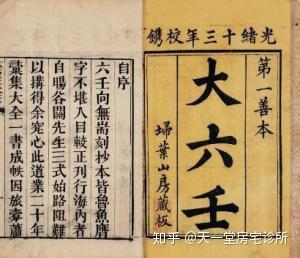 光緒十三年校鐫
第一善本
大六壬
掃葉山房藏板
自序
六壬向無耑刻抄本皆魯魚
字不堪入目較正刊行海內者
自賜谷關先生三式始路阻難
以搆得余究心此道業二十年
彙集大全一書成帙因旅橐蕭
知乎 @天一堂房宅诊所